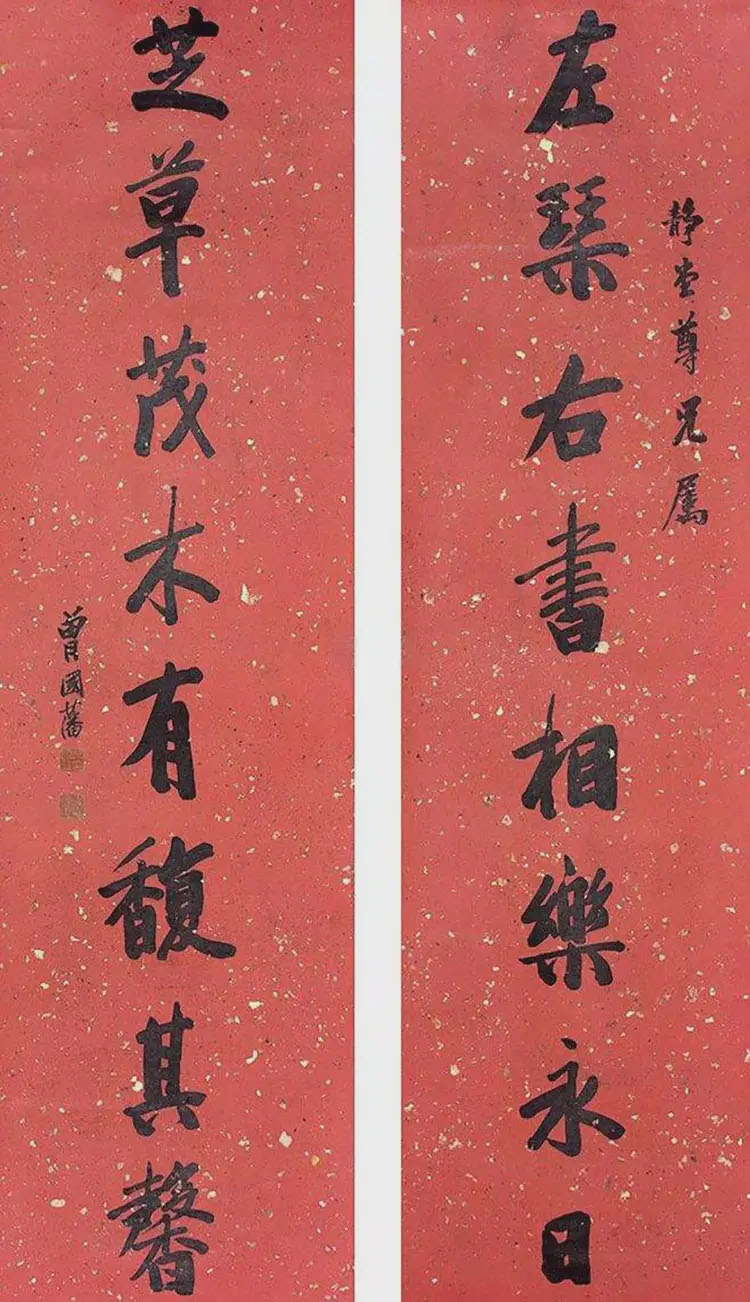 靜堂尊兄属
左琴右書相樂永日
芝草茂木有馥其馨
曾國藩